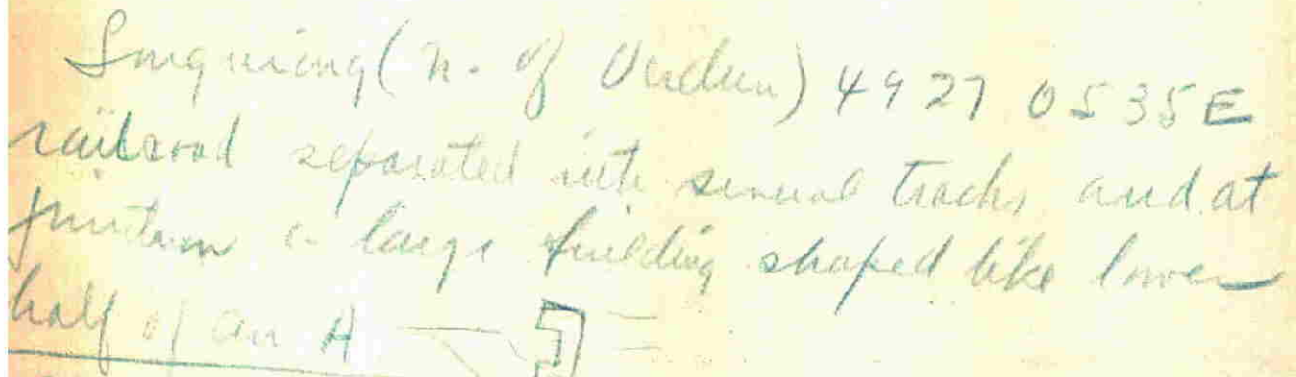 Longuiony (N. of Verdun) 4927 0535E
railroad separated into several tracks and at
junction a large building shaped like lower
half of an A